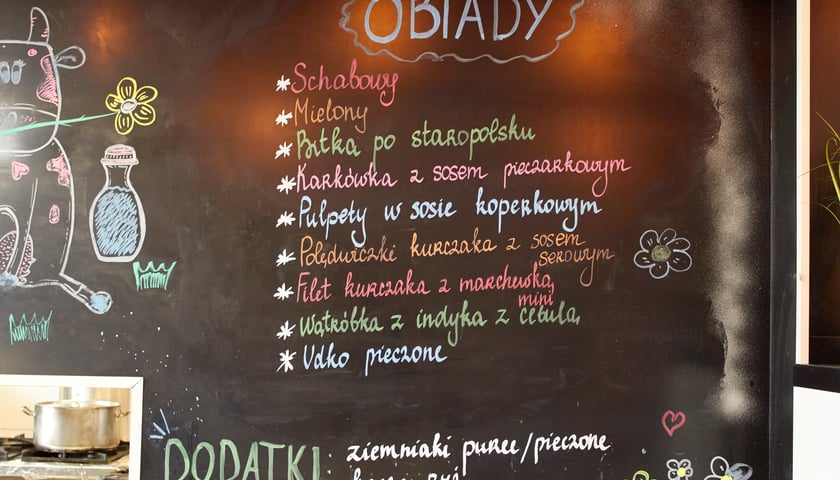 OBIADY
* Schabowy
* Mielony
* Bitka po staropolsku
* Karkówka z sosem pieczarkowym
* Pulpety w sosie koperkowym
* Polędwiczki kurczaka z sosem
serowym
* Filet kurczaka z marchewką
mini
* Wątróbka z indyka z cebulą
* Udko pieczone
DODATKI
ziemniaki puree/pieczone